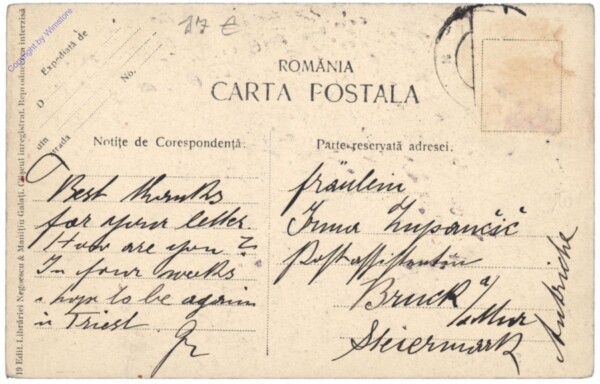 17 €
Copyright by Wimstore
Expediată de
D
No.
din
strada
ROMÂNIA
CARTA POSTALA
Notițe de Corespondență.
Parte reservată adresei.
Best thanks
for your letter.
How are you?
In four weeks
i hope to be again
in Triest.
Fräulein
Irma Zupančič
Postassistentin
Bruck a/
Mur
Steiermark
Autriche
19 Edit. Librăriei Negoescu & Manițiu Galați. Clișeul inregistrat. Reproducerea interzisă